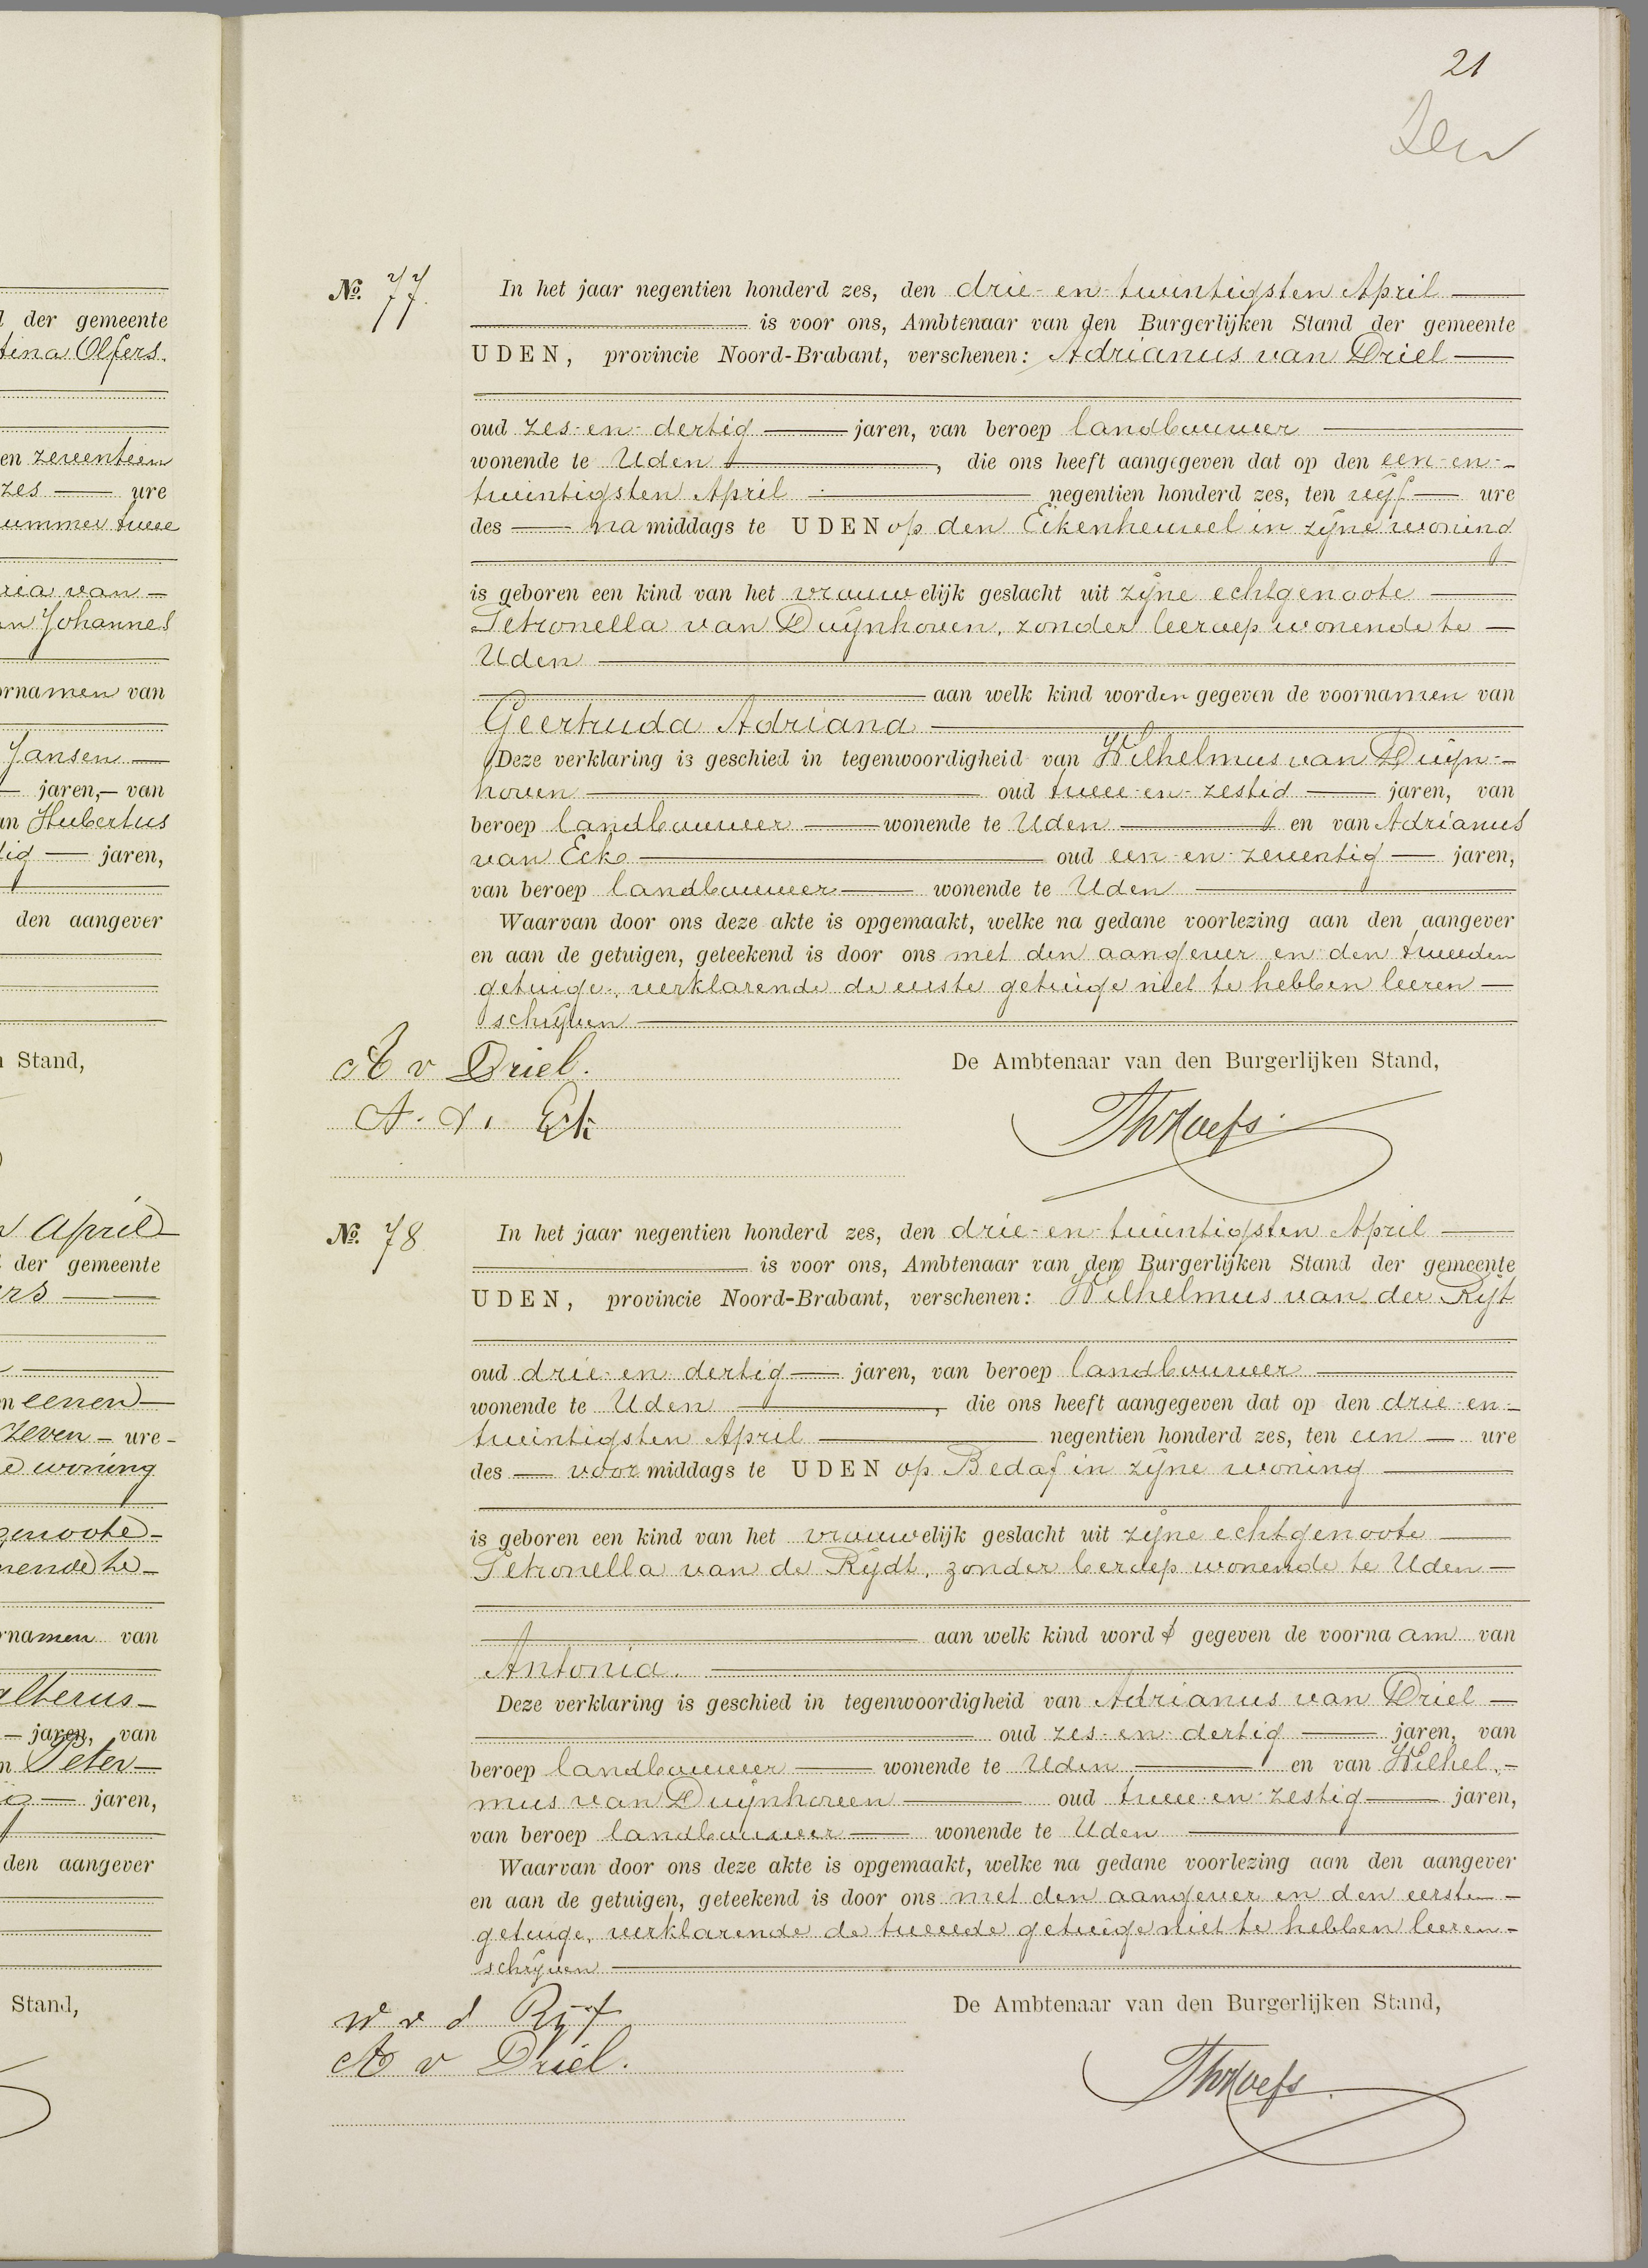 21
d der gemeente
tina Olfers.
en zeventien
zes ure
ummer twee
ria van
Johannes
ornamen van
Jansen
jaren, van
an Hubertus
tig jaren,
den aangever
n Stand,
April
der gemeente
ers
n eenen
zeven ure
e woning
genoote
nende te
rnamen van
alterus
jaren, van
n Peter
jaren,
den aangever
Stand,
No. 77.
In het jaar negentien honderd zes, den drie-en-twintigsten April
is voor ons, Ambtenaar van den Burgerlijken Stand der gemeente
UDEN, provincie Noord-Brabant, verschenen: Adrianus van Driel
oud zes-en-dertig jaren, van beroep landbouwer
wonende te Uden, die ons heeft aangegeven dat op den een-en-
twintigsten April negentien honderd zes, ten vijf ure
des na middags te UDEN op den Eikenheuvel in zijne woning
is geboren een kind van het vrouwelijk geslacht uit zijne echtgenoote
Petronella van Duijnhoven, zonder beroep wonende te
Uden
aan welk kind worden gegeven de voornamen van
Geertruda Adriana
Deze verklaring is geschied in tegenwoordigheid van Wilhelmus van Duijn-
hoven oud twee-en-zestig jaren, van
beroep landbouwer wonende te Uden en van Adrianus
van Eck oud een-en-zeventig jaren,
van beroep landbouwer wonende te Uden
Waarvan door ons deze akte is opgemaakt, welke na gedane voorlezing aan den aangever
en aan de getuigen, geteekend is door ons met den aangever en den tweeden
getuige, verklarende de eerste getuige niet te hebben leeren
schrijven
A v Driel.
De Ambtenaar van den Burgerlijken Stand,
A. v. Eck
No. 78
In het jaar negentien honderd zes, den drie-en-twintigsten April
is voor ons, Ambtenaar van den Burgerlijken Stand der gemeente
UDEN, provincie Noord-Brabant, verschenen: Wilhelmus van der Rijt
oud drie-en-dertig jaren, van beroep landbouwer
wonende te Uden, die ons heeft aangegeven dat op den drie-en-
twintigsten April negentien honderd zes, ten een ure
des voor middags te UDEN op Bedaf in zijne woning
is geboren een kind van het vrouwelijk geslacht uit zijne echtgenoote
Petronella van de Rijdt, zonder beroep wonende te Uden
aan welk kind wordt gegeven de voornaam van
Antonia.
Deze verklaring is geschied in tegenwoordigheid van Adrianus van Driel
oud zes-en-dertig jaren, van
beroep landbouwer wonende te Uden en van Wilhel-
mus van Duijnhoven oud twee-en-zestig jaren,
van beroep landbouwer wonende te Uden
Waarvan door ons deze akte is opgemaakt, welke na gedane voorlezing aan den aangever
en aan de getuigen, geteekend is door ons met den aangever en den eersten
getuige, verklarende de tweede getuige niet te hebben leeren
schrijven
W v d Rijt
De Ambtenaar van den Burgerlijken Stand,
A v Driel.